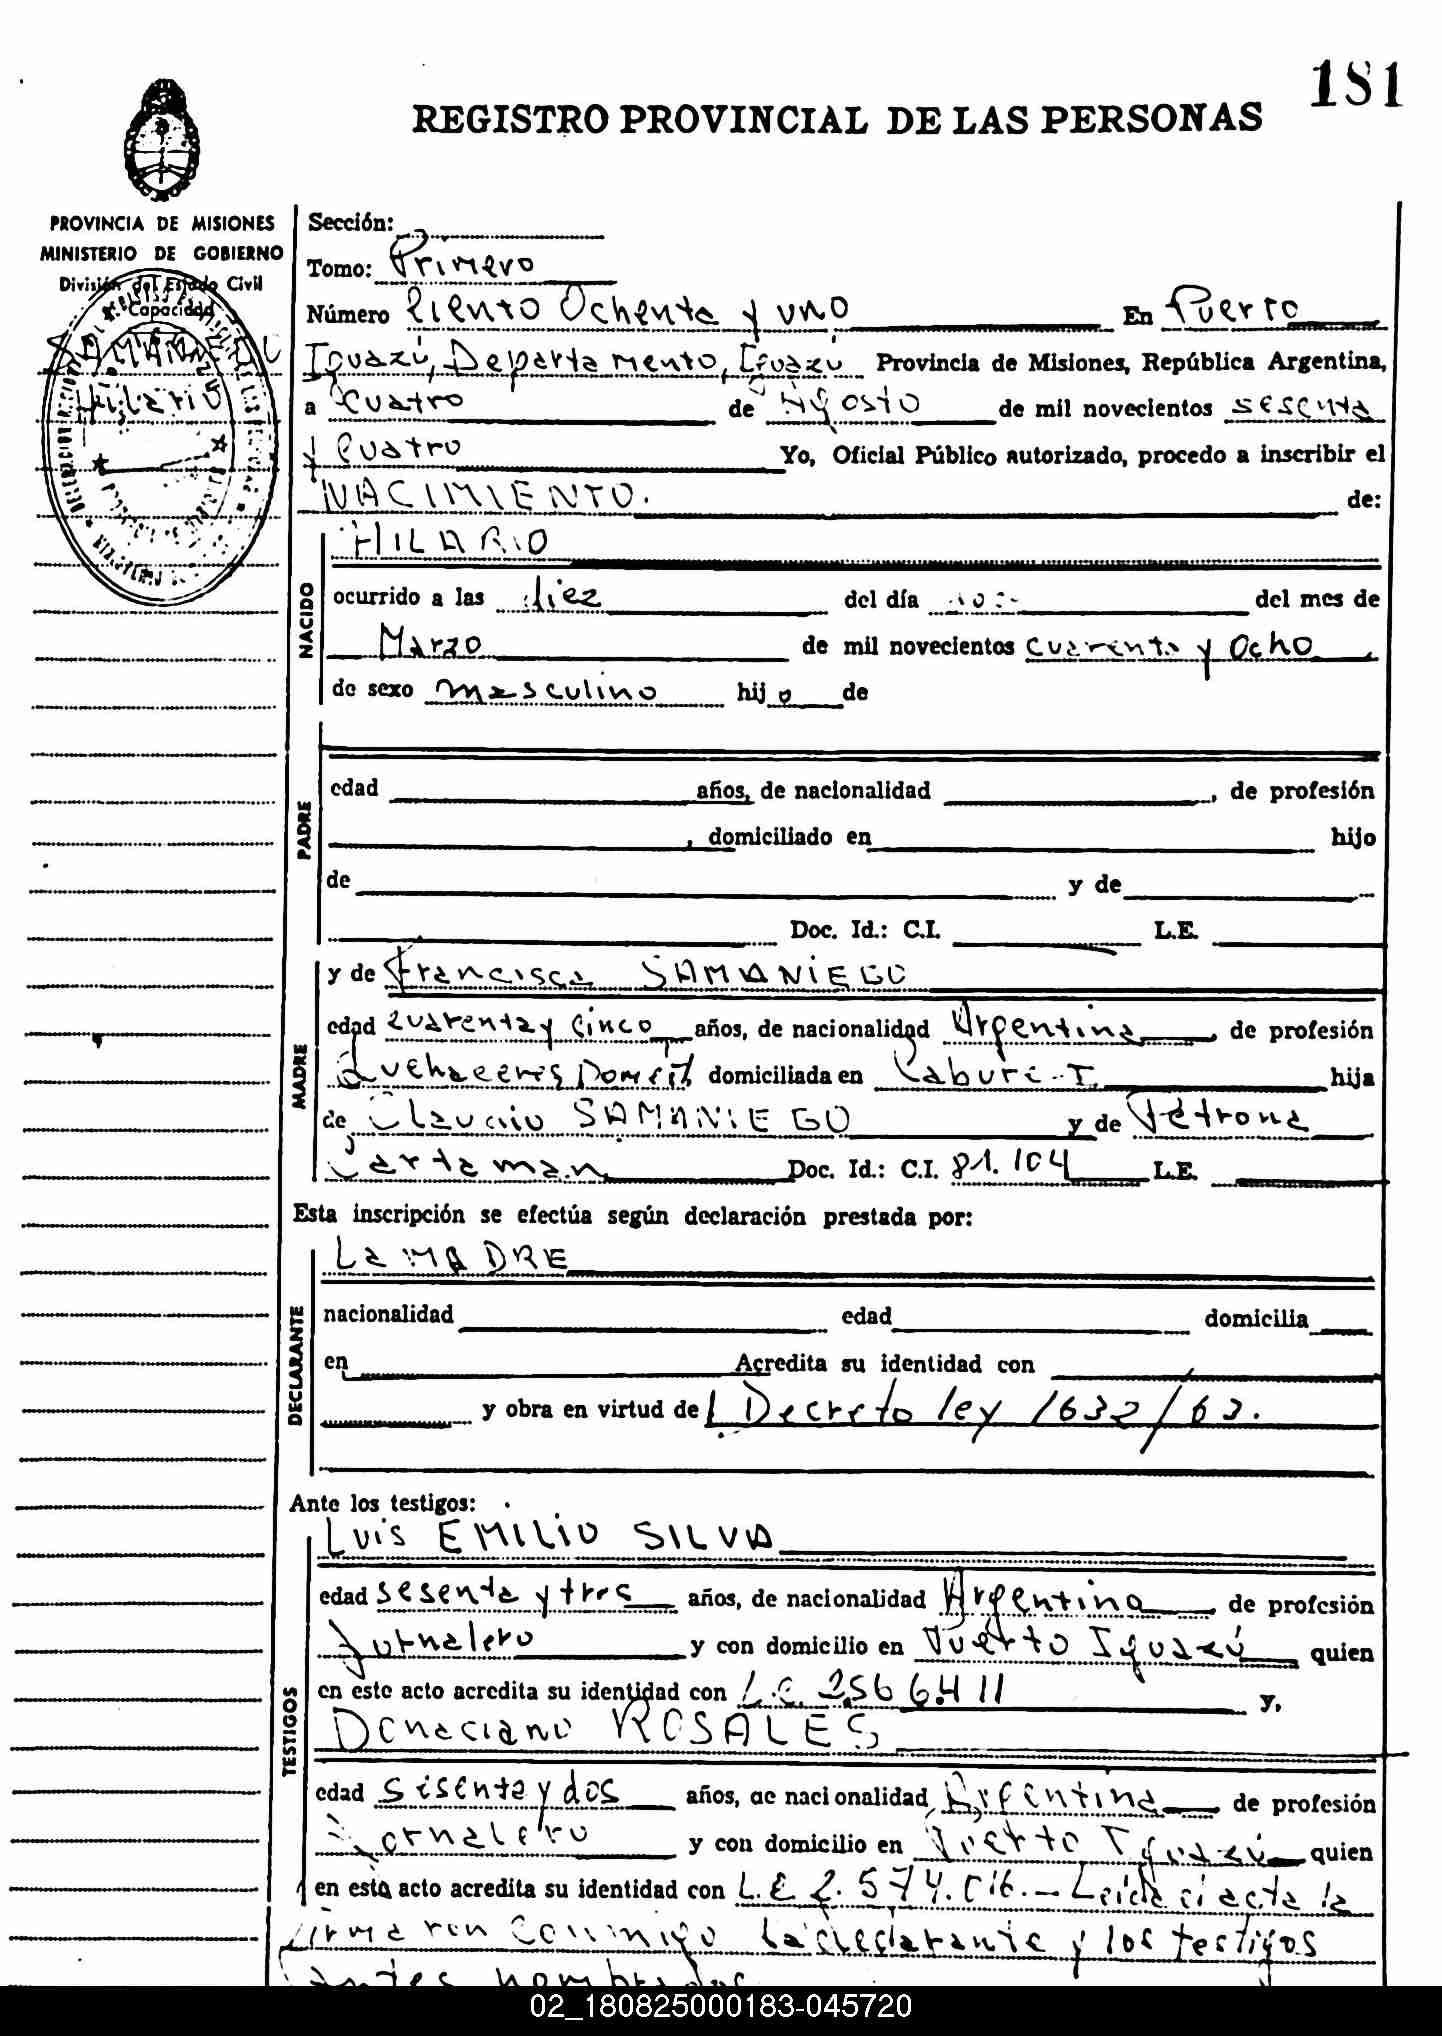 181
REGISTRO PROVINCIAL DE LAS PERSONAS
PROVINCIA DE MISIONES
MINISTERIO DE GOBIERNO
División del Estado Civil
y Capacidad
Hilario
Sección:
Tomo: Primero
Número Ciento Ochenta y uno En Puerto
Iguazú, Departamento, Iguazú Provincia de Misiones, República Argentina,
a cuatro de Agosto de mil novecientos sesenta
y Cuatro Yo, Oficial Público autorizado, procedo a inscribir el
NACIMIENTO. de:
NACIDO
HILARIO
ocurrido a las diez del día del mes de
Marzo de mil novecientos cuarenta y Ocho
de sexo masculino hijo de
PADRE
edad años, de nacionalidad , de profesión
, domiciliado en hijo
de y de
Doc. Id.: C.I. L.E.
MADRE
y de Francisca SAMANIEGO
edad cuarenta y cinco años, de nacionalidad Argentina , de profesión
domiciliada en Caburei hija
de Claudio SAMANIEGO y de Petrona
Cartaman Doc. Id.: C.I. 81.104 L.E.
Esta inscripción se efectúa según declaración prestada por:
DECLARANTE
La MADRE
nacionalidad edad domicilia
en Acredita su identidad con
y obra en virtud de Decreto ley 1632/63.
Ante los testigos:
TESTIGOS
Luis EMILIO SILVA
edad sesenta y tres años, de nacionalidad Argentina , de profesión
Jornalero y con domicilio en Puerto Iguazú quien
en este acto acredita su identidad con L.E. 2.566.411 y,
Donaciano ROSALES
edad sesenta y dos años, de nacionalidad Argentina , de profesión
Jornalero y con domicilio en Puerto Iguazú quien
en este acto acredita su identidad con L.E 2.574.016.- Leida el acta la
firmaron conmigo la declarante y los testigos
antes nombrados
02_180825000183-045720